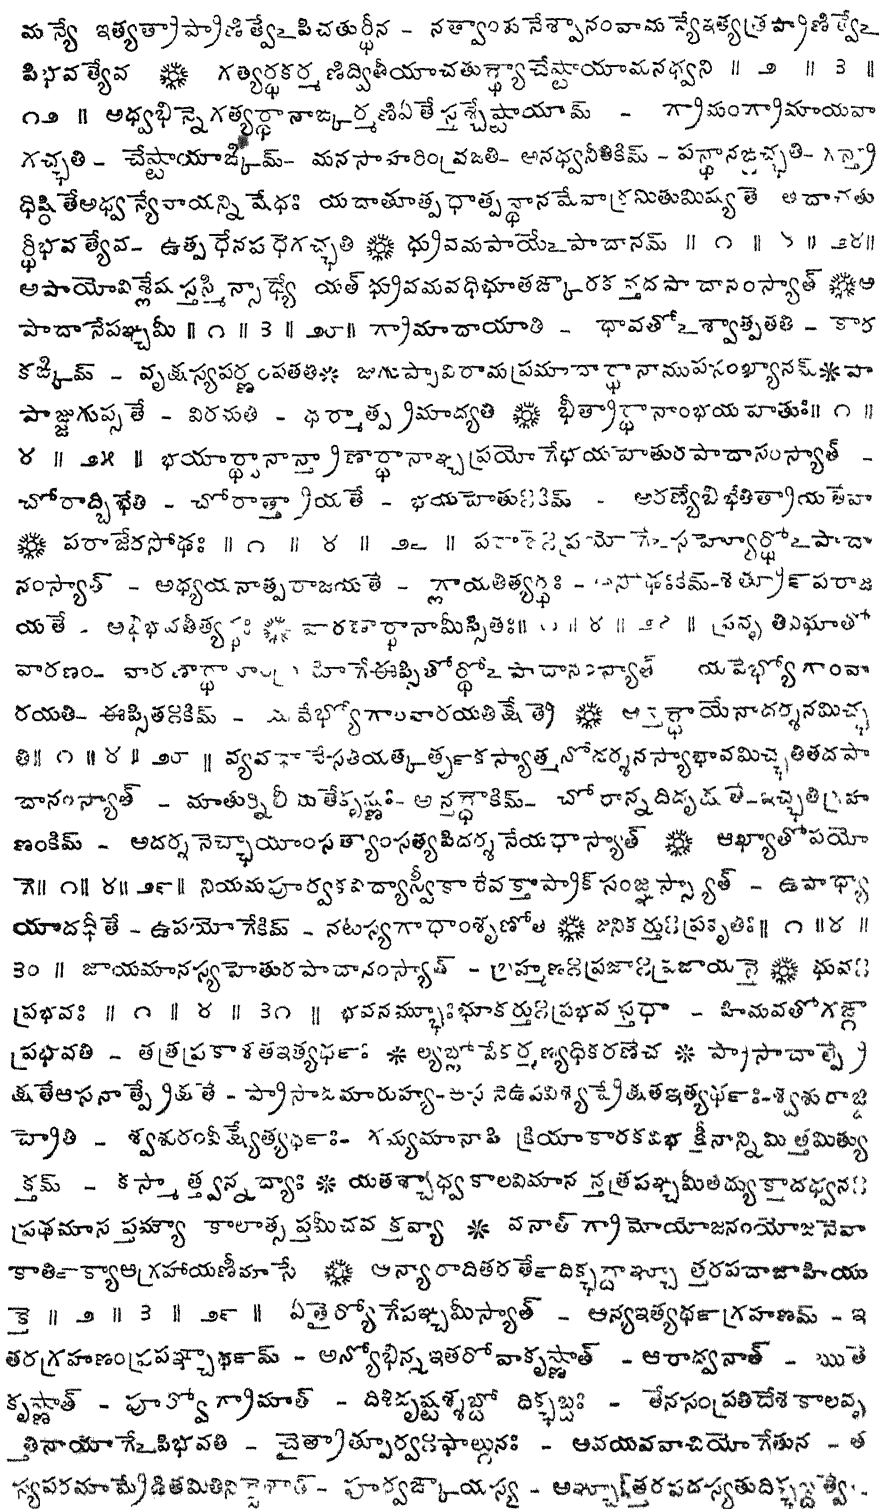 మన్యే ఇత్యత్రాప్రాణిత్వేఽపిచతుర్థీన - నత్వాంశునేశ్వానంవామన్యేఇత్యత్రప్రాణిత్వేఽ
పిభవత్యేవ ❋ గత్యర్థకర్మణిద్వితీయాచతుర్థ్యౌచేష్టాయామనధ్వని ॥ ౨ ॥ ౩ ॥
౧౨ ॥ అధ్వభిన్నెగత్యర్థానాఙ్కర్మణిఏతేస్తశ్చేష్టాయామ్ - గ్రామంగ్రామాయవా
గచ్ఛతి - చేష్టాయాఙ్కిమ్- మనసాహరింవ్రజతి- అనధ్వనీతికిమ్ - పన్థానఙ్గచ్ఛతి- గన్త్రా
ధిష్ఠితేఅధ్వన్యేవాయన్నిషేధః యదాతూత్పథాత్పన్థానమేవాక్రమితుమిష్యతే తదాచతు
ర్థీభవత్యేవ- ఉత్పథేనపథెగచ్ఛతి ❋ ధ్రువమపాయేఽపాదానమ్ ॥ ౧ ॥ ४ ॥ ౨౪॥
అపాయోవిశ్లేషస్తస్మిన్సాధ్యే యత్ ధ్రువమవధిభూతఙ్కారకన్తదపాదానంస్యాత్ ❋అ
పాదానేపఞ్చమీ ॥ ౧ ॥ ౩ ॥ ౨౮॥ గ్రామాదాయాతి - ధావతోఽశ్వాత్పతతి - కార
కఙ్కిమ్ - వృక్షస్యపర్ణంపతతి❋ జుగుప్సావిరామప్రమాదార్థానాముపసంఖ్యానమ్❋పా
పాజ్జుగుప్సతే - విరమతి - ధర్మాత్ప్రమాద్యతి ❋ భీత్రార్థానాంభయహేతుః॥ ౧ ॥
౪ ॥ ౨౫ ॥ భయార్థానాన్త్రాణార్థానాఞ్చప్రయోగేభయహేతురపాదానంస్యాత్ -
చోరాద్బిభేతి - చోరాత్త్రాయతే - భయహేతుఃకిమ్ - అరణ్యేబిభేతిత్రాయతేవా
❋ పరాజేరసోఢః ॥ ౧ ॥ ౪ ॥ ౨౬ ॥ పరాజేఃప్రయోగేఽసహ్యోర్థోఽపాదా
నంస్యాత్ - అధ్యయనాత్పరాజయతే - గ్లాయతీత్యర్థః - అసోఢఃకిమ్-శత్రూన్పరాజ
యతే - అభిభవతీత్యర్థః ❋ వారణార్థానామీప్సితః॥ ౧ ॥ ౪ ॥ ౨౭ ॥ ప్రవృత్తివిఘాతో
వారణం- వారణార్థానాంప్రయోగేఈప్సితోర్థోఽపాదానంస్యాత్ యవేభ్యోగాంవా
రయతి- ఈప్సితఃకిమ్ - యవేభ్యోగాంవారయతిక్షేత్రె ❋ అన్తర్ధౌయేనాదర్శనమిచ్ఛ
తి॥ ౧ ॥౪ ॥ ౨౮ ॥ వ్యవధానేసతియత్కర్తృకస్యాత్మనోదర్శనస్యాభావమిచ్ఛతితదపా
దానంస్యాత్ - మాతుర్నిలీయతేకృష్ణః- అన్తర్ధౌకిమ్- చోరాన్నదిదృక్షతే-ఇచ్ఛతిగ్రహ
ణంకిమ్ - అదర్శనెచ్ఛాయాంసత్యాంసత్యపిదర్శనేయథాస్యాత్ ❋ ఆఖ్యాతోపయో
గె॥ ౧॥ ౪॥ ౨౯॥ నియమపూర్వకవిద్యాస్వీకారేవక్తాప్రాక్సంజ్ఞస్స్యాత్ - ఉపాధ్యా
యాదధీతే - ఉపయోగేకిమ్ - నటస్యగాథాంశృణోతి ❋ జనికర్తుఃప్రకృతిః॥ ౧ ॥౪ ॥
౩౦ ॥ జాయమానస్యహేతురపాదానంస్యాత్ - బ్రహ్మణఃప్రజాఃప్రజాయన్తె ❋ భువః
ప్రభవః ॥ ౧ ॥ ౪ ॥ ౩౧ ॥ భవనమ్భూఃభూకర్తుఃప్రభవస్తథా - హిమవతోగఙ్గా
ప్రభవతి - తత్రప్రకాశతఇత్యర్థః ❋ ల్యబ్లోపేకర్మణ్యధికరణేచ ❋ ప్రాసాదాత్ప్రే
క్షతేఆసనాత్ప్రేక్షతే - ప్రాసాదమారుహ్యా-ఆసనెఉపవిశ్యప్రేక్షతఇత్యర్థః-శ్వశురాజ్జి
హ్రేతి - శ్వశురంవీక్ష్యేత్యర్థః- గమ్యమానాపి క్రియాకారకవిభక్తీనాన్నిమిత్తమిత్యు
క్తమ్ - కస్మాత్త్వన్నద్యాః ❋ యతశ్చాధ్వకాలవిమానన్తత్రపఞ్చమీతద్యుక్తాదధ్వనః
ప్రథమాసప్తమ్యౌ కాలాత్సప్తమీచవక్తవ్యా ❋ వనాత్ గ్రామోయోజనంయోజనెవా
కార్తిక్యాఆగ్రహాయణీమాసే ❋ అన్యారాదితరర్తేదిక్ఛబ్దాఞ్చూత్తరపదాజాహియు
క్తె ॥ ౨ ॥ ౩ ॥ ౨౯ ॥ ఏతైర్యోగేపఞ్చమీస్యాత్ - అన్యఇత్యర్థగ్రహణమ్ - ఇ
తరగ్రహణంప్రపఞ్చార్థమ్ - అన్యోభిన్నఇతరోవాకృష్ణాత్ - ఆరాద్వనాత్ - ఋతే
కృష్ణాత్ - పూర్వోగ్రామాత్ - దిశిదృష్టశ్శబ్దో దిక్ఛబ్దః - తేనసంప్రతిదేశకాలవృ
త్తినాయోగేఽపిభవతి - చైత్రాత్పూర్వఃఫాల్గునః - అవయవవాచియోగేతున - త
స్యపరమామ్రేడితమితినిర్దెశాత్ - పూర్వఙ్కాయస్య - అఞ్చూత్తరపదస్యతుదిక్ఛబ్దత్వే